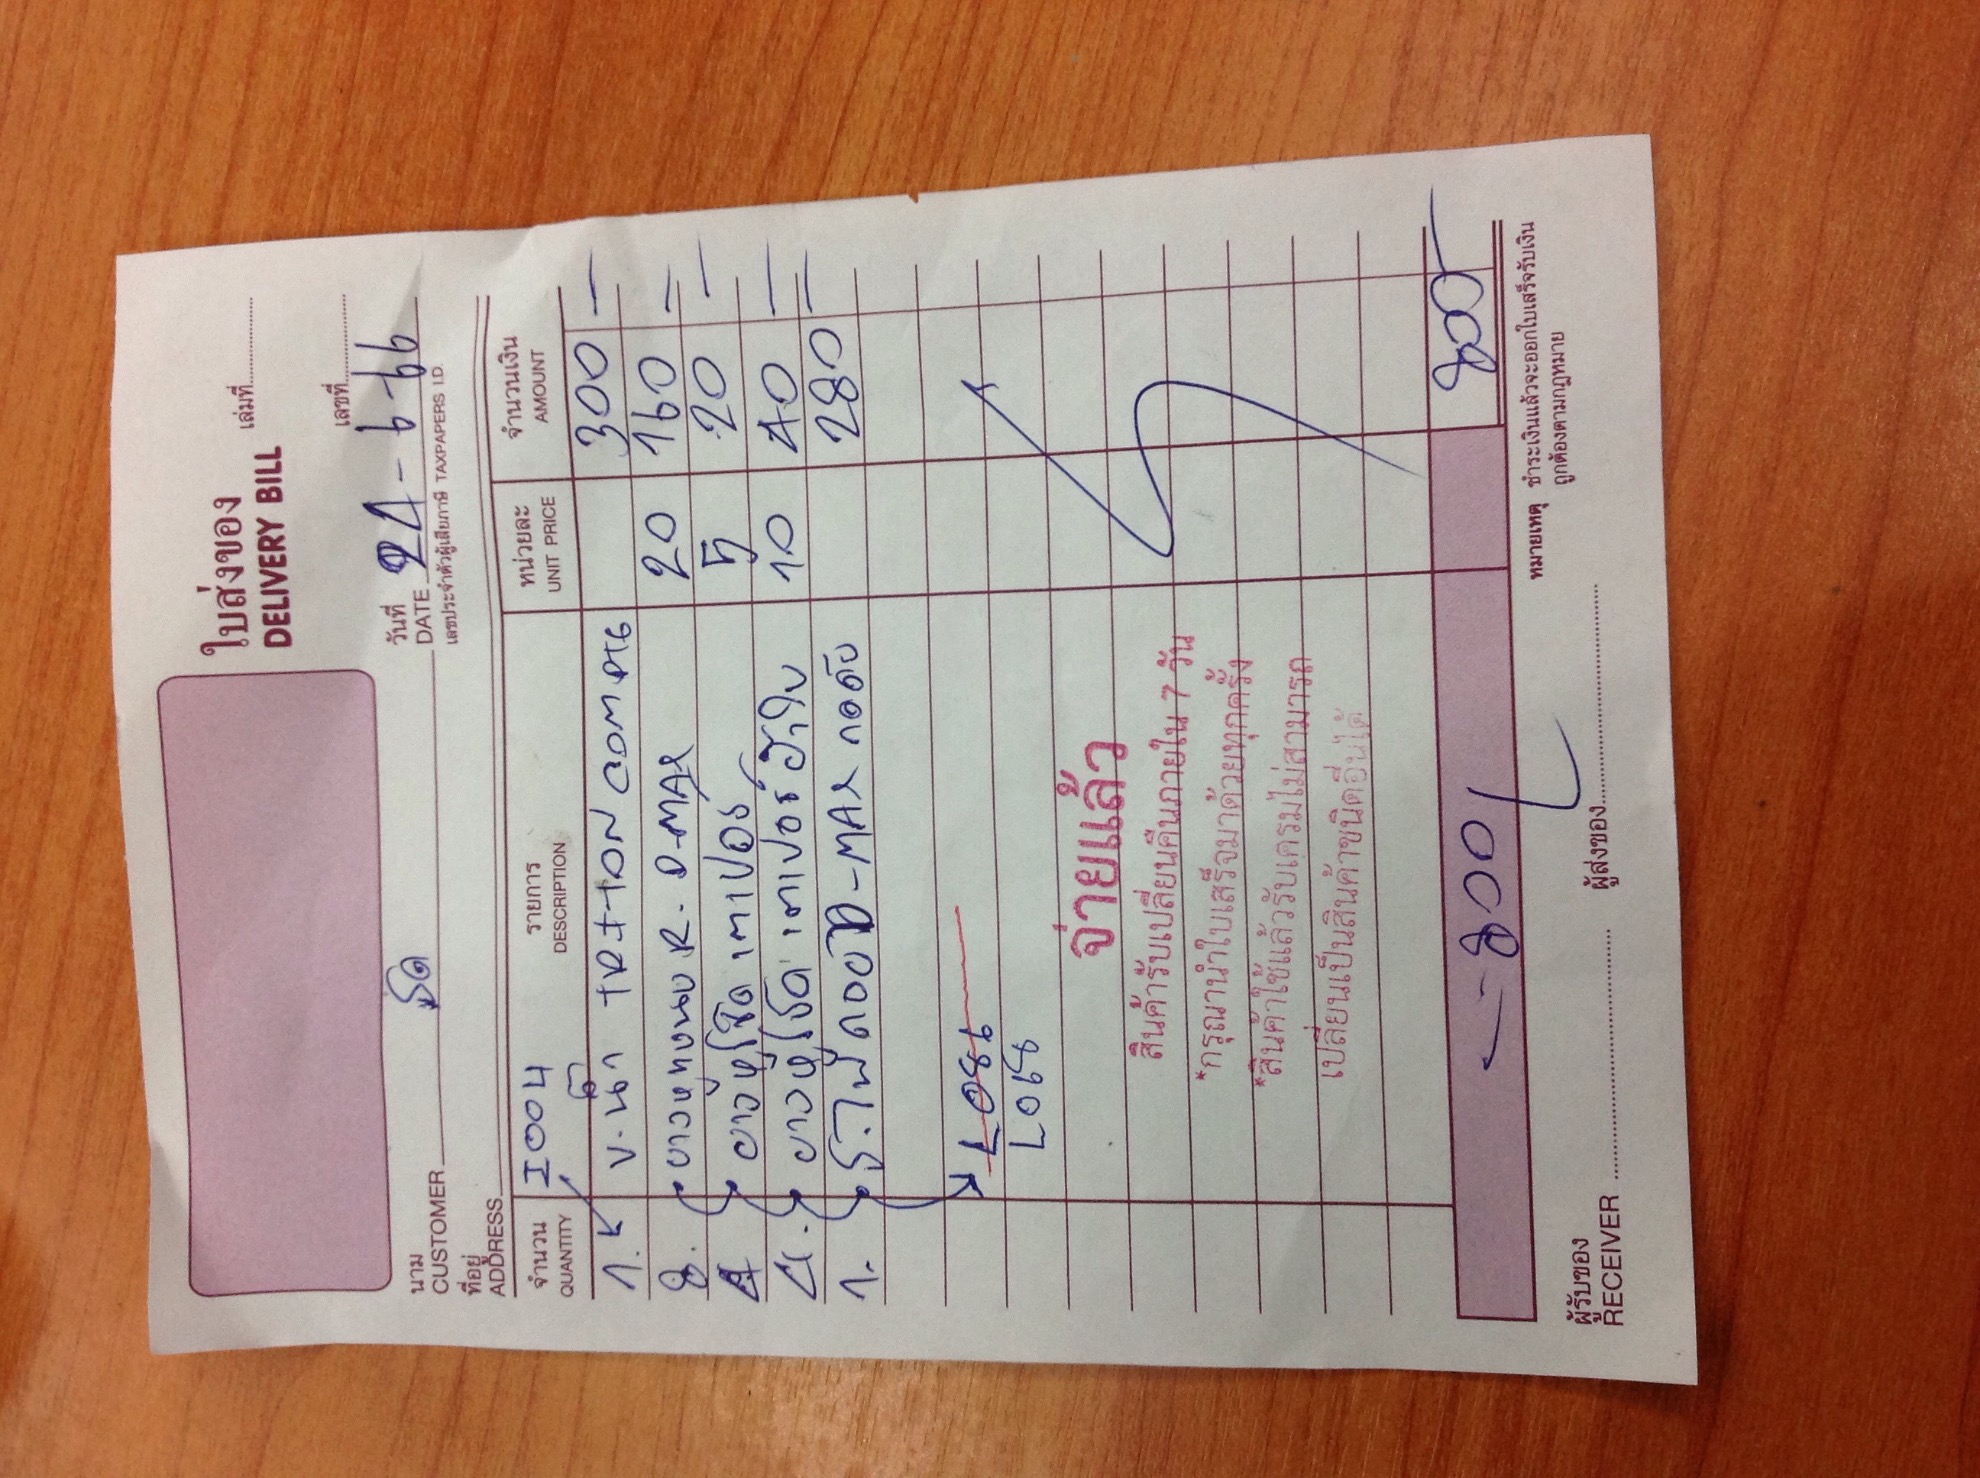 ใบส่งของ
DELIVERY BILL
เล่มที่
เลขที่
นาม
CUSTOMER
วันที่
DATE 24-6-66
ที่อยู่
ADDRESS
เลขประจำตัวผู้เสียภาษี TAXPAPERS I.D.
จำนวน
QUANTITY
รายการ
DESCRIPTION
หน่วยละ
UNIT PRICE
จำนวนเงิน
AMOUNT
I004
1. TRITON COMMON 300 -
8. ยางหู R. D-MAX 20 160 -
4 ยางหูโช๊ค เทเปอร์ 5 20 -
4. ยางหูโช๊ค เทเปอร์ 10 40 -
1. D-MAX 280 -
L086
L068
จ่ายแล้ว
สินค้ารับเปลี่ยนคืนภายใน 7 วัน
*กรุณานำใบเสร็จมาด้วยทุกครั้ง
*สินค้าใช้แล้วรับเครมไม่สามารถ
เปลี่ยนเป็นสินค้าชนิดอื่นได้
-800- 800 -
หมายเหตุ ชำระเงินแล้วจะออกใบเสร็จรับเงิน
ถูกต้องตามกฎหมาย
ผู้รับของ
RECEIVER
ผู้ส่งของ